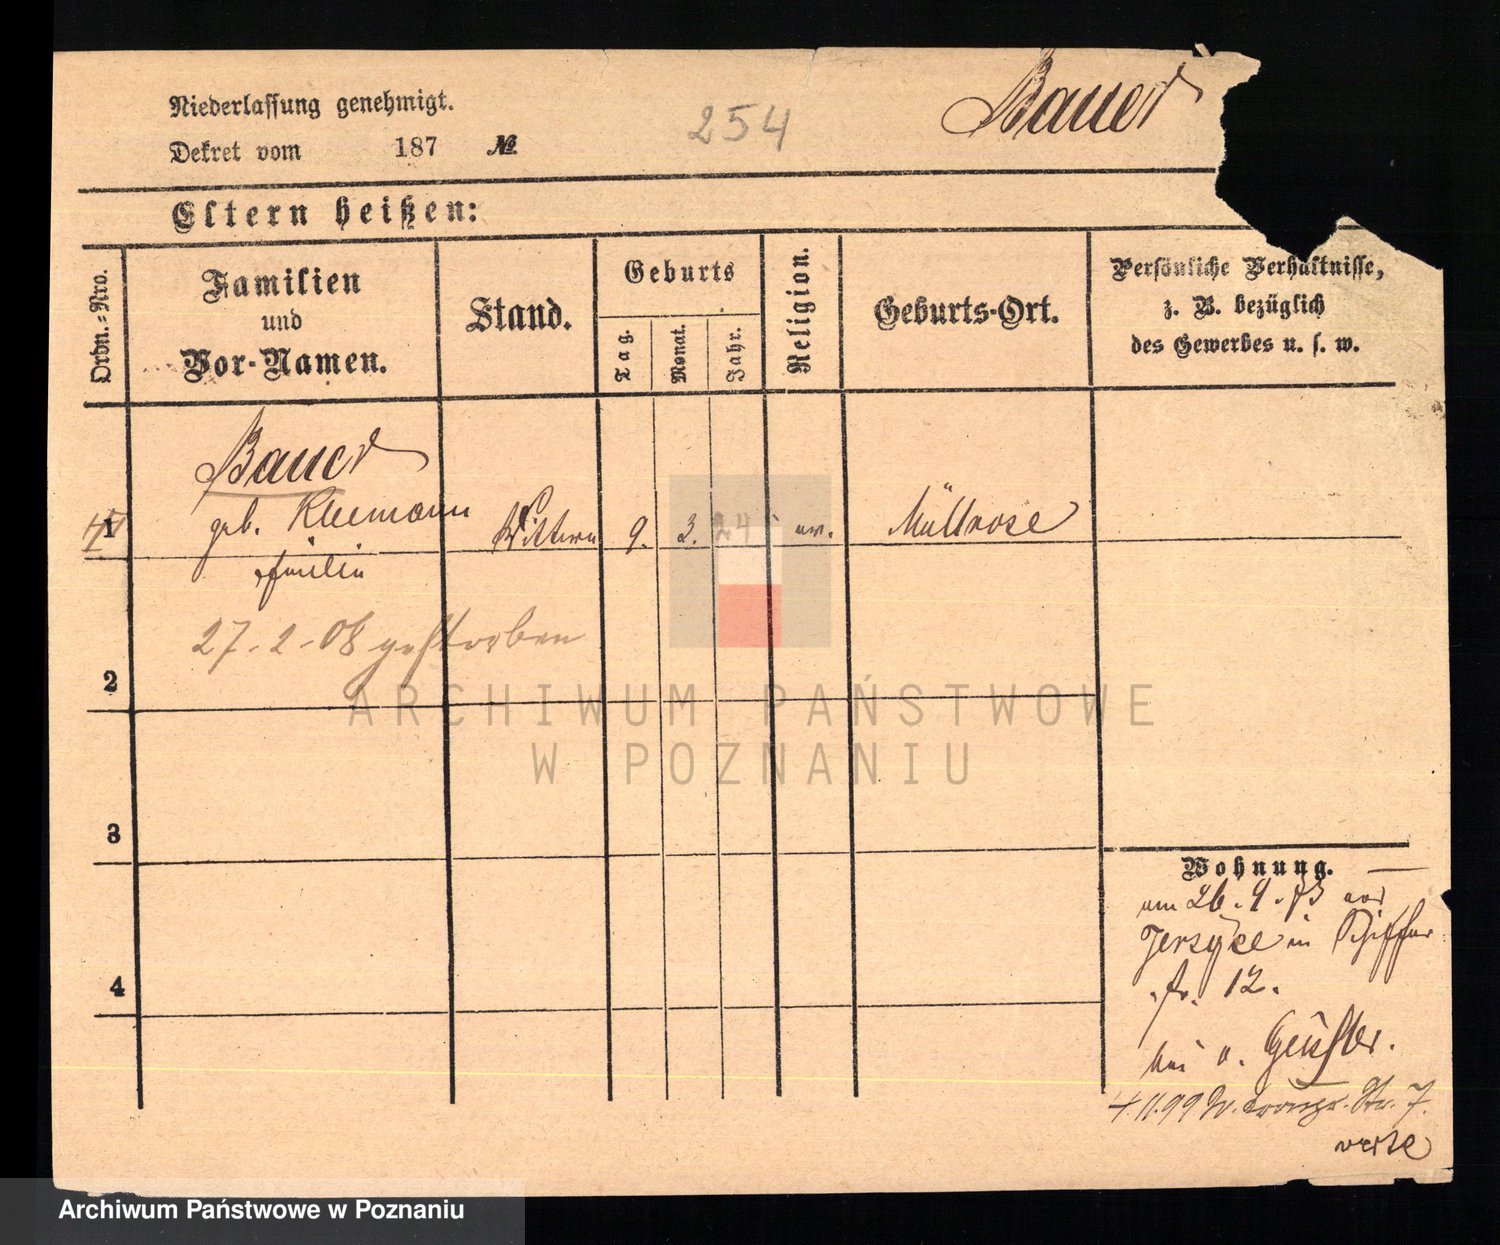 Niederlassung genehmigt.
Dekret vom 187 №
254
Bauer
Eltern heißen:
Ordn.-Nro.
Familien
und
Vor-Namen.
Stand.
Geburts
Tag.
Monat.
Jahr.
Religion.
Geburts-Ort.
Persönliche Verhältnisse,
z. B. bezüglich
des Gewerbes u. s. w.
Bauer
1 geb. Kleemann Wittwe 9. 3. 24 ev. Müllrose
Emilie
27-2-08 gestorben
2
3
4
Wohnung.
am 26.9.93
Jersyce in
12.
bei
4.11.99 Str. 7.
verte
ARCHIWUM PAŃSTWOWE
W POZNANIU
Archiwum Państwowe w Poznaniu